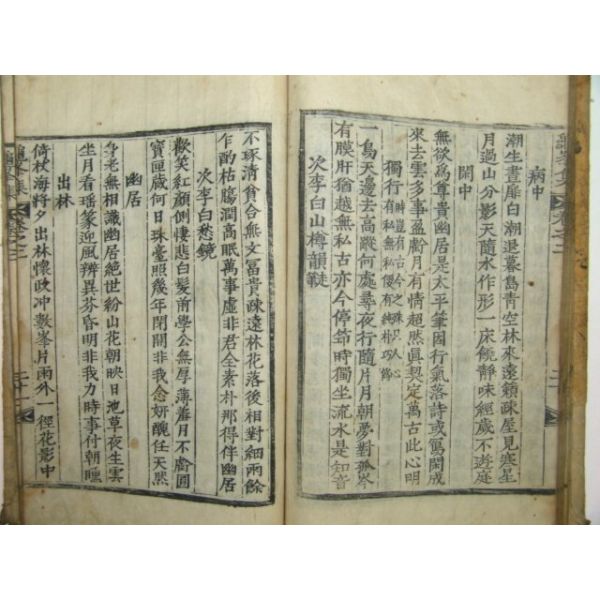 病中
潮生晝扉白潮退暮島青空林來遠籟疎屋見寒星
月過山分影天隨水作形一床饒靜味經歲不遊庭
閒中
無欲爲尊貴幽居是太平筆因行氣落詩或寫閑成
來去雲多事盈虧月有情超然眞契定萬古此心明
獨行 時豈有古今之殊只人心
有私無私便有純朴巧
一鳥天邊去高蹤何處尋夜行隨片月朝夢對孤岑
有膜肝猶越無私古亦今停笻時獨坐流水是知音
次李白山樽韻
不琢清貧合無文富貴疎遠林花落後相對細雨餘
乍酌枯腸潤高眠萬事虛非君全素朴那得伴幽居
次李白愁鏡
歡笑紅顔側悽悲白髮前學公無厚薄 月不虧圓
寶匣 何日珠毫照幾年閉關非我念妍醜任天然
幽居
身老無相識幽居絶世紛山花朝映日池草夜生雲
坐月看瑶篆迎風辨異芬昏明非我力時事付朝曛
出林
倚杖海將夕出林懷政冲數峯片雨外一徑花影中
龜峯集 卷之二